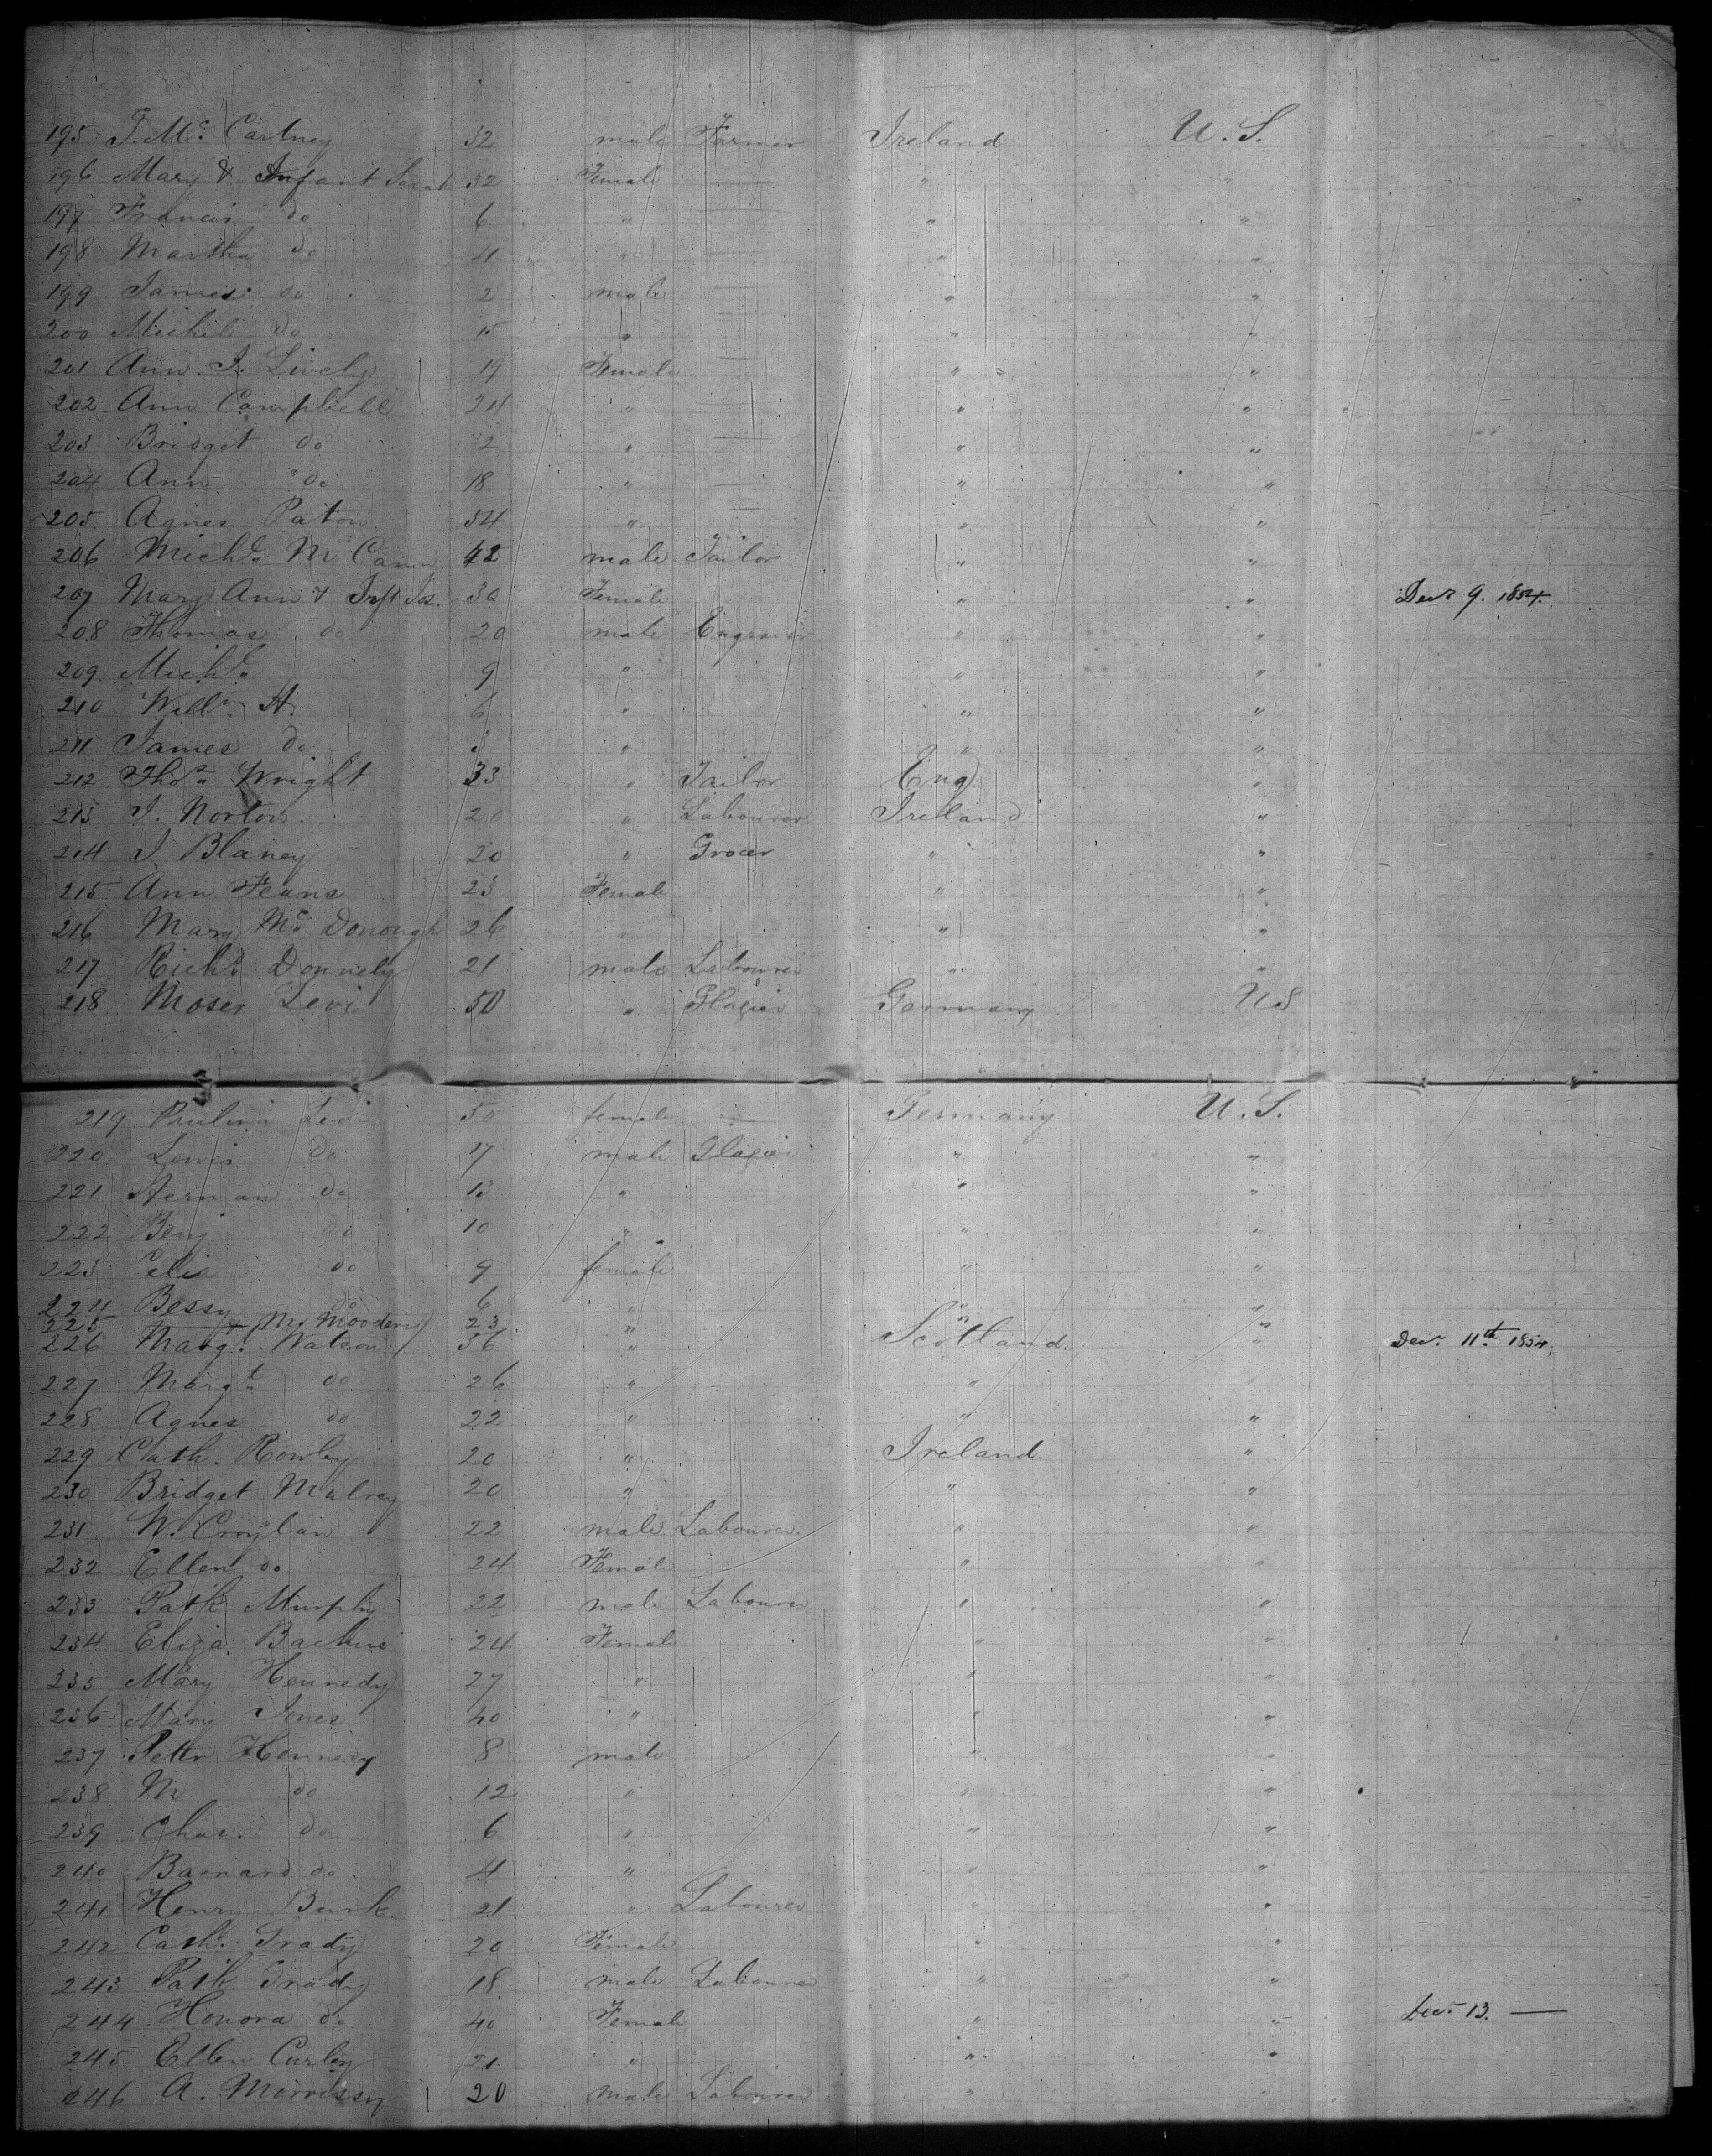 195 J. Mc. Cartney 32 male Farmer Ireland U.S.
196 Mary & Infant Sarah 32 Female — " "
197 Francis do 6 " — " "
198 Martha do 4 " — " "
199 James do 2 male — " "
200 Michl do 15 " — " "
201 Ann. J. Lively 19 Female — " "
202 Ann Campbell 24 " — " "
203 Bridget do 2 " — " "
204 Ann do 18 " — " "
205 Agnes Paton 34 " — " "
206 Michl. Mc Cann 42 male Tailor " "
207 Mary Ann & Inft Jas. 30 Female " " Decr 9. 1854.
208 Thomas do 20 male Engraver " "
209 Michl. 9 " " "
210 Willm. H. 6 " " "
211 James do " " "
212 Thos. Wright 33 " Tailor Eng "
213 J. Norton 20 " Labourer Ireland "
214 J. Blaney 20 " Grocer " "
215 Ann Feans 23 Female " "
216 Mary Mc. Donough 26 " " "
217 Richd. Donnely 21 male Labourer " "
218 Moses Levi 50 " Glazier Germany U S
219 Paulina Levi 50 female — Germany U.S.
220 Lewis do 17 male Glazier " "
221 Herman do 13 " " "
222 Benj do 10 " " "
223 Celia do 9 female " "
224 Bessy do 6 " " "
225 23 " " "
226 Margt. Watson 56 " Scotland. " Decr. 11th 1854
227 Margt. do 26 " " "
228 Agnes do 22 " " "
229 Cath. Rowley 20 " Ireland "
230 Bridget Mulvey 20 " " "
231 W. Croylan 22 male Labourer. " "
232 Ellen do 24 Female " "
233 Patk Murphy 22 male Labourer " "
234 Eliza Backus 24 Female " "
235 Mary Kennedy 27 " " "
236 Mary Jones 40 " " "
237 Peter Kennedy 8 male " "
238 M do 12 " " "
239 Chas. do 6 " " "
240 Barnard do 4 " " "
241 Henry Burk 21 " Labourer " "
242 Cath. Grady 20 Female " "
243 Patk Grady 18 male Labourer " "
244 Honora do 40 Female " " Decr 13. —
245 Ellen Curley 21 " " "
246 A. Morrissy 20 male Labourer " "